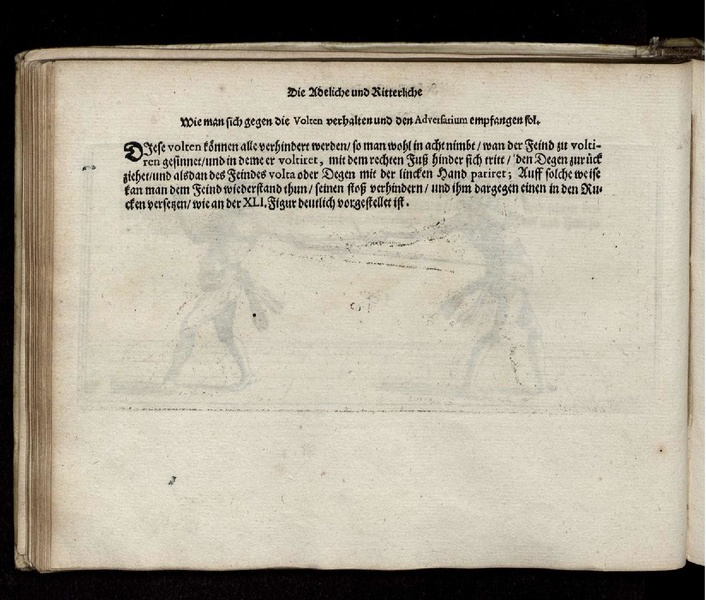 Die Adeliche und Ritterliche
Wie man sich gegen die Volten verhalten und den Adversarium empfangen sol.
DIese volten können alle verhindert werden/ so man wohl in acht nimbt/ wan der Feind zu volti-
ren gesinnet/und in deme er voltiret, mit dem rechten Fuß hinder sich tritt/ den Degen zurück
ziehet/und alsdan des Feindes volta oder Degen mit der lincken Hand pariret; Auff solche weise
kan man dem Feind wiederstand thun/ seinen stoß verhindern/ und ihm dargegen einen in den Ru-
cken versetzen/ wie an der XLI. Figur deutlich vorgestellet ist.